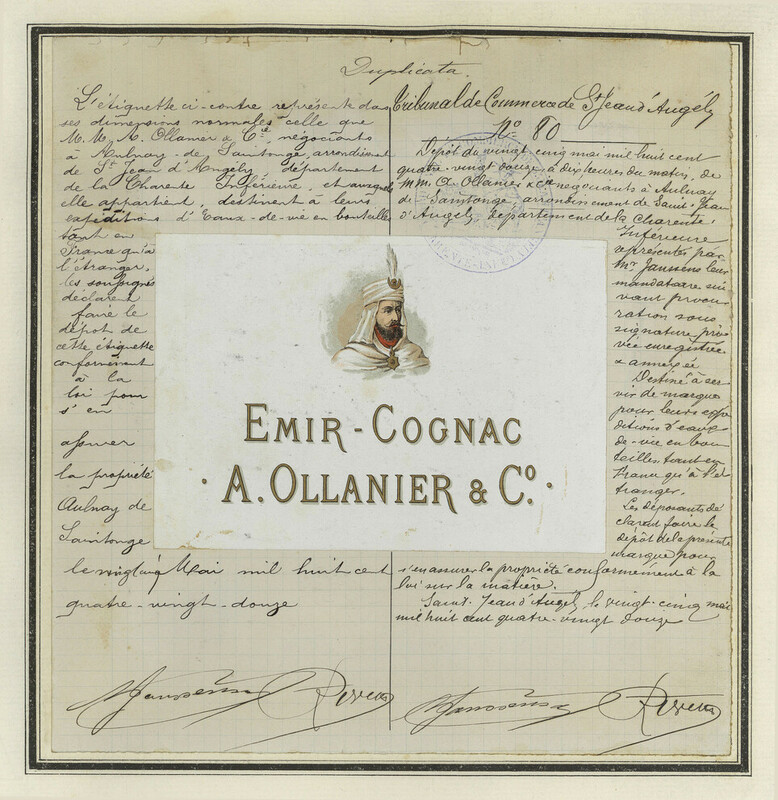 Duplicata.
L'étiquette ci-contre représente dans
ses dimensions normales celle que
M.M. A. Ollanier & Cie, négociants
à Aulnay-de-Saintonge, arrondissement
de St Jean d'Angély, département
de la Charente Inférieure, et auxquels
elle appartient, destinent à leurs
expéditions d'Eaux-de-vie en bouteilles
tant en
France qu'à
l'étranger,
les soussignés
déclarent
faire le
dépôt de
cette étiquette
conformément
à la
loi pour
s'en
assurer
la propriété
Aulnay de
Saintonge
le vingt cinq Mai mil huit cent
quatre-vingt-douze
Janssens Rivette
Tribunal de Commerce de St Jean d'Angély
No 80
Dépôt du vingt cinq mai mil huit cent
quatre-vingt douze à dix heures du matin, de
MM. A. Ollanier & Cie négociants à Aulnay
de Saintonge, arrondissement de Saint-Jean
d'Angély, département de la Charente
Inférieure
représentés par
Mr Janssens leur
mandataire sui
vant procu
ration sous
signature pri
vée enregistrée
& annexée
Destiné à ser
vir de marque
pour leurs expé
ditions d'eaux
de-vie en bou
teilles tant en
France qu'à l'é
tranger.
Les déposants dé
clarent faire le
dépôt de la présente
marque pour
s'en assurer la propriété conformément à la
loi sur la matière.
Saint-Jean d'Angély, le vingt-cinq mai
mil huit cent quatre-vingt douze
Janssens
EMIR-COGNAC
· A. OLLANIER & Co. ·